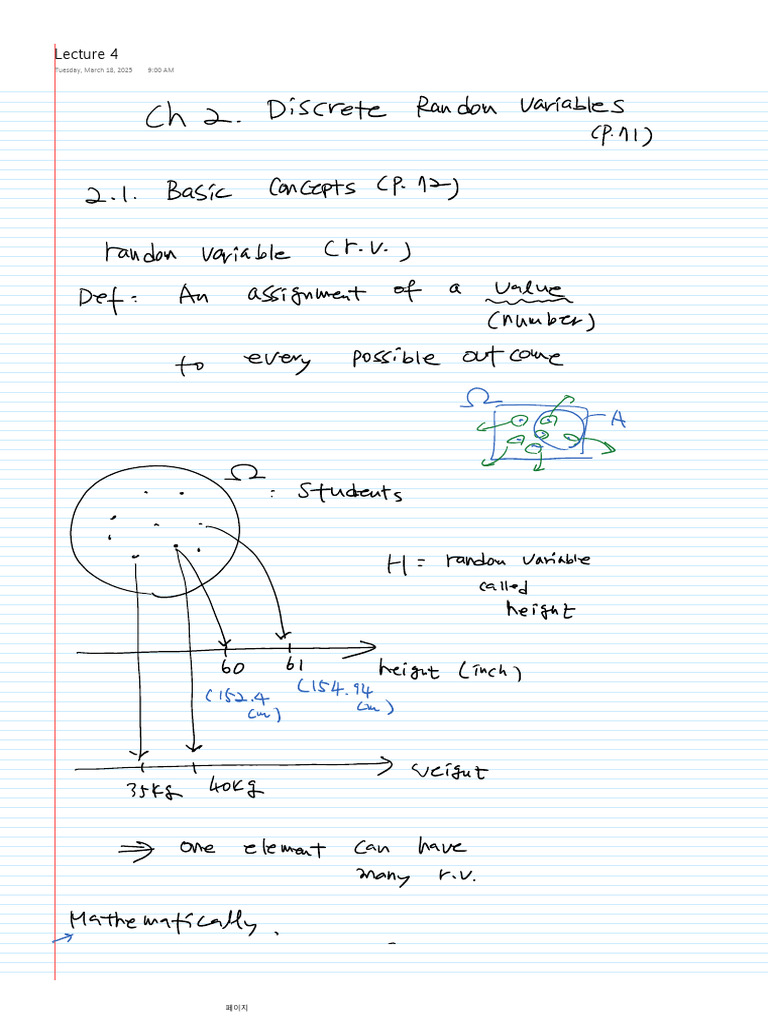 Lecture 4
Tuesday, March 18, 2025 9:00 AM
Ch 2. Discrete Random Variables
(p.71)
2.1. Basic Concepts (p.72)
random variable (r.v.)
Def: An assignment of a value
(number)
to every possible outcome
Ω
A
Ω : Students
H = random variable
called
height
60 61 height (inch)
(152.4 cm) (154.94 cm)
35kg 40kg weight
⇒ one element can have
many r.v.
Mathematically,
페이지